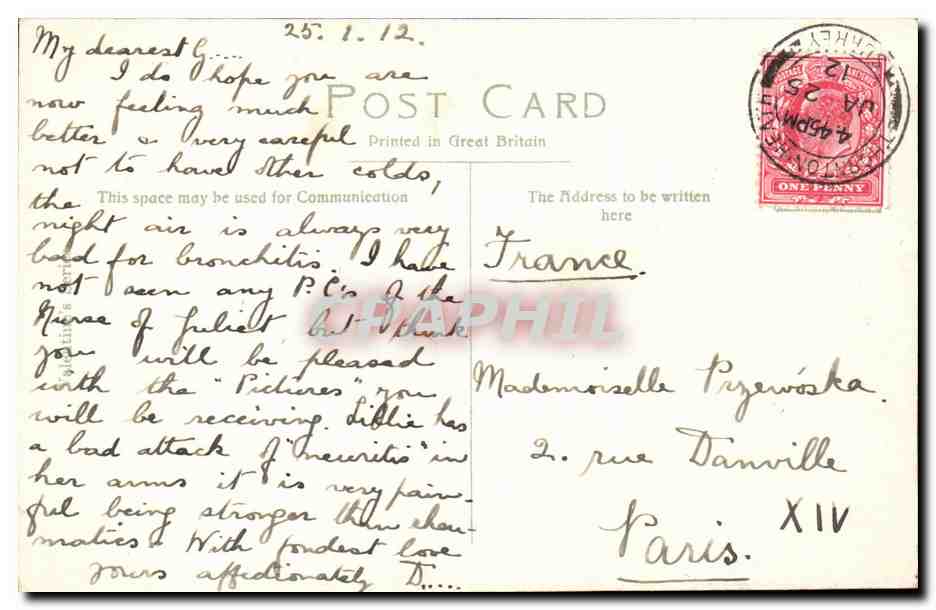 25.1.12.
My dearest G....
I do hope you are
now feeling much
better & very careful
not to have other colds,
the
night air is always very
bad for bronchitis. I have
not seen any P.C's of the
Nurse of Juliet but think
you will be pleased
with the "Pictures" you
will be receiving. Lillie has
a bad attack of "neuritis" in
her arms it is very pain-
ful being stronger than rheu-
matics. With fondest love
yours affectionately D.....
POST CARD
Printed in Great Britain
This space may be used for Communication
The Address to be written
here
Valentine's Series
France.
Mademoiselle Przewóska.
2. rue Danville
XIV
Paris.
THORNTON HEATH
SURREY
4.45PM
JA 25
12
POSTAGE
ONE PENNY
CPAPHIL